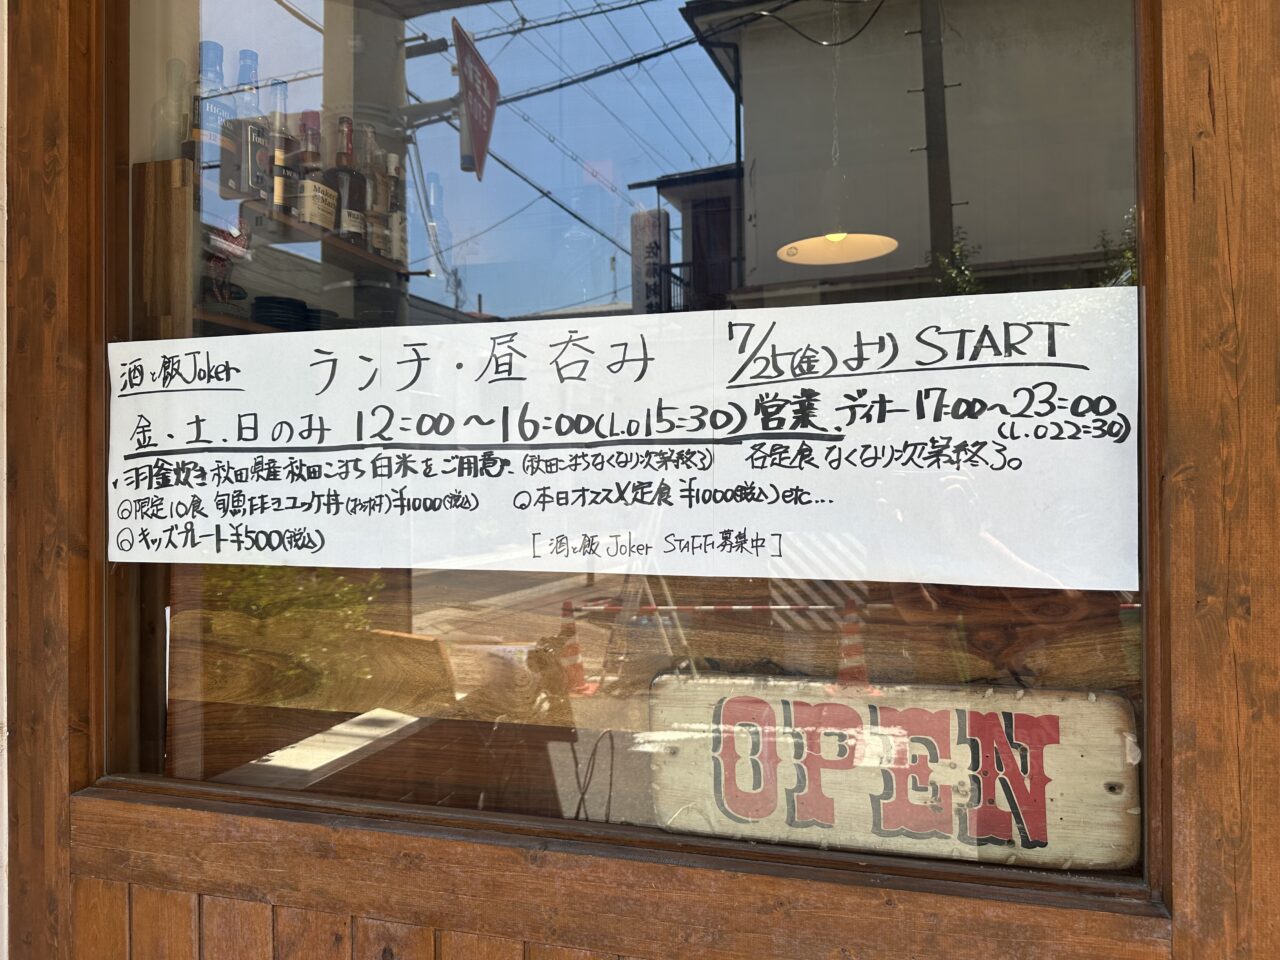 止まれ
STOP
HIGH
Maker's Mark
酒と飯Joker ランチ・昼呑み 7/25(金)より START
金・土・日のみ 12:00〜16:00(L.O15:30)営業、ディナー17:00〜23:00(L.O22:30)
羽釜炊き秋田県産秋田こまち白米をご用意 (秋田こまちなくなり次第終了) 各定食なくなり次第終了。
◎限定10食 旬魚 ユッケ丼 ¥1000(税込) ◎本日オススメ定食¥1000(税込)etc...
◎キッズプレート¥500(税込) [酒と飯 Joker STAFF募集中]
OPEN